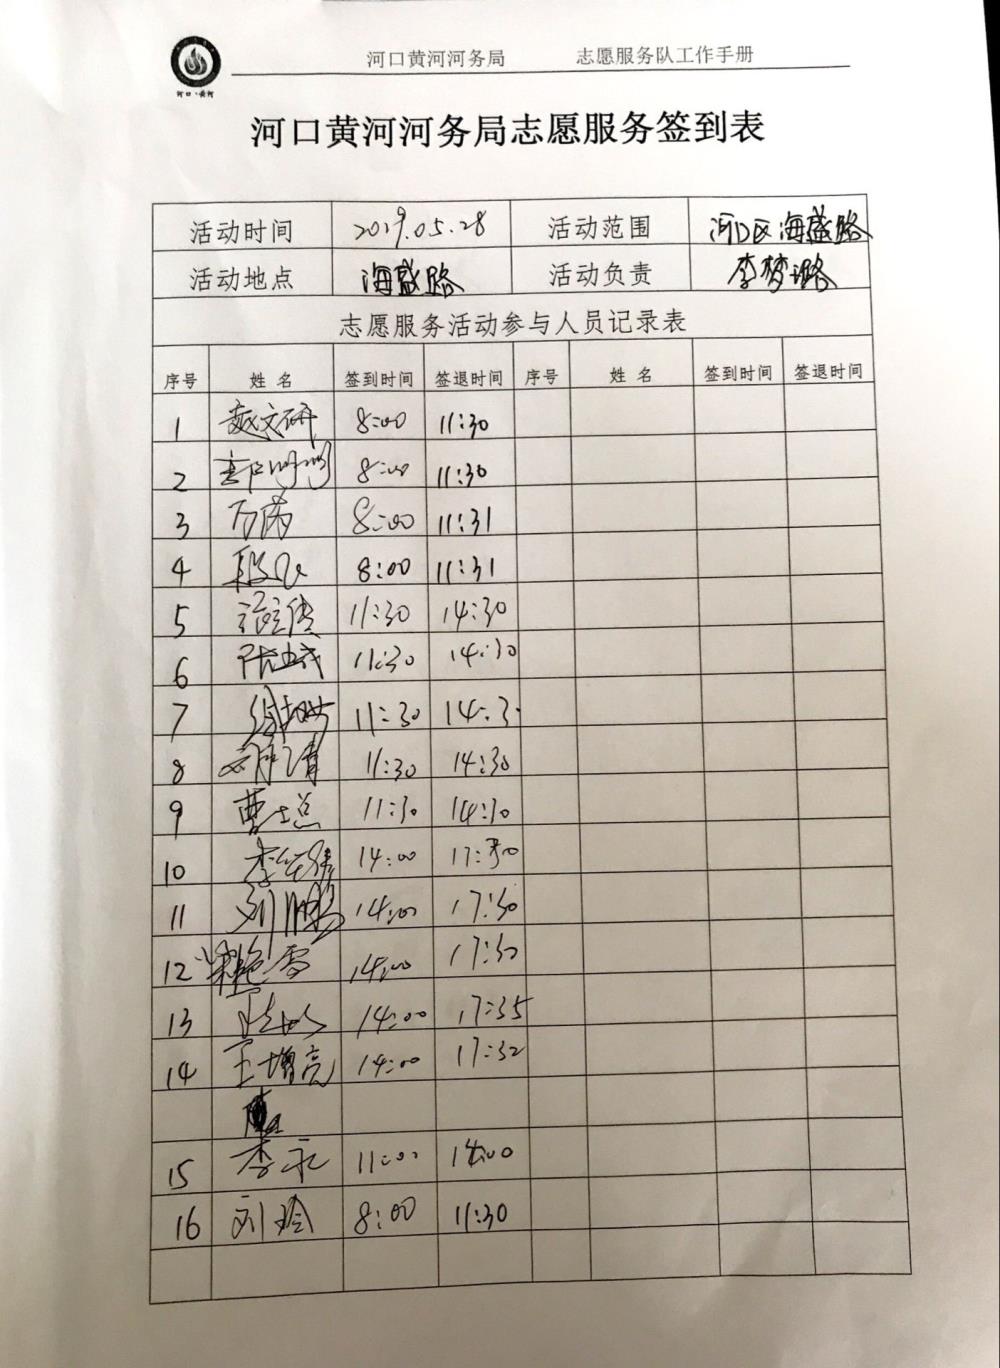 河口·黄河
河口黄河河务局 志愿服务队工作手册
河口黄河河务局志愿服务签到表
活动时间 2019.05.28 活动范围 河口区海盛路
活动地点 海盛路 活动负责 李梦璐
志愿服务活动参与人员记录表
序号 姓名 签到时间 签退时间 序号 姓名 签到时间 签退时间
1 赵文研 8:00 11:30
2 8:00 11:30
3 万荫 8:00 11:31
4 8:00 11:31
5 11:30 14:30
6 11:30 14:30
7 11:30 14:3
8 11:30 14:30
9 曹士总 11:30 14:30
10 14:00 17:30
11 刘鹏 14:00 17:30
12 艳雪 14:00 17:30
13 14:00 17:35
14 王增亮 14:00 17:32
15 李永 11:00 14:00
16 刘玲 8:00 11:30